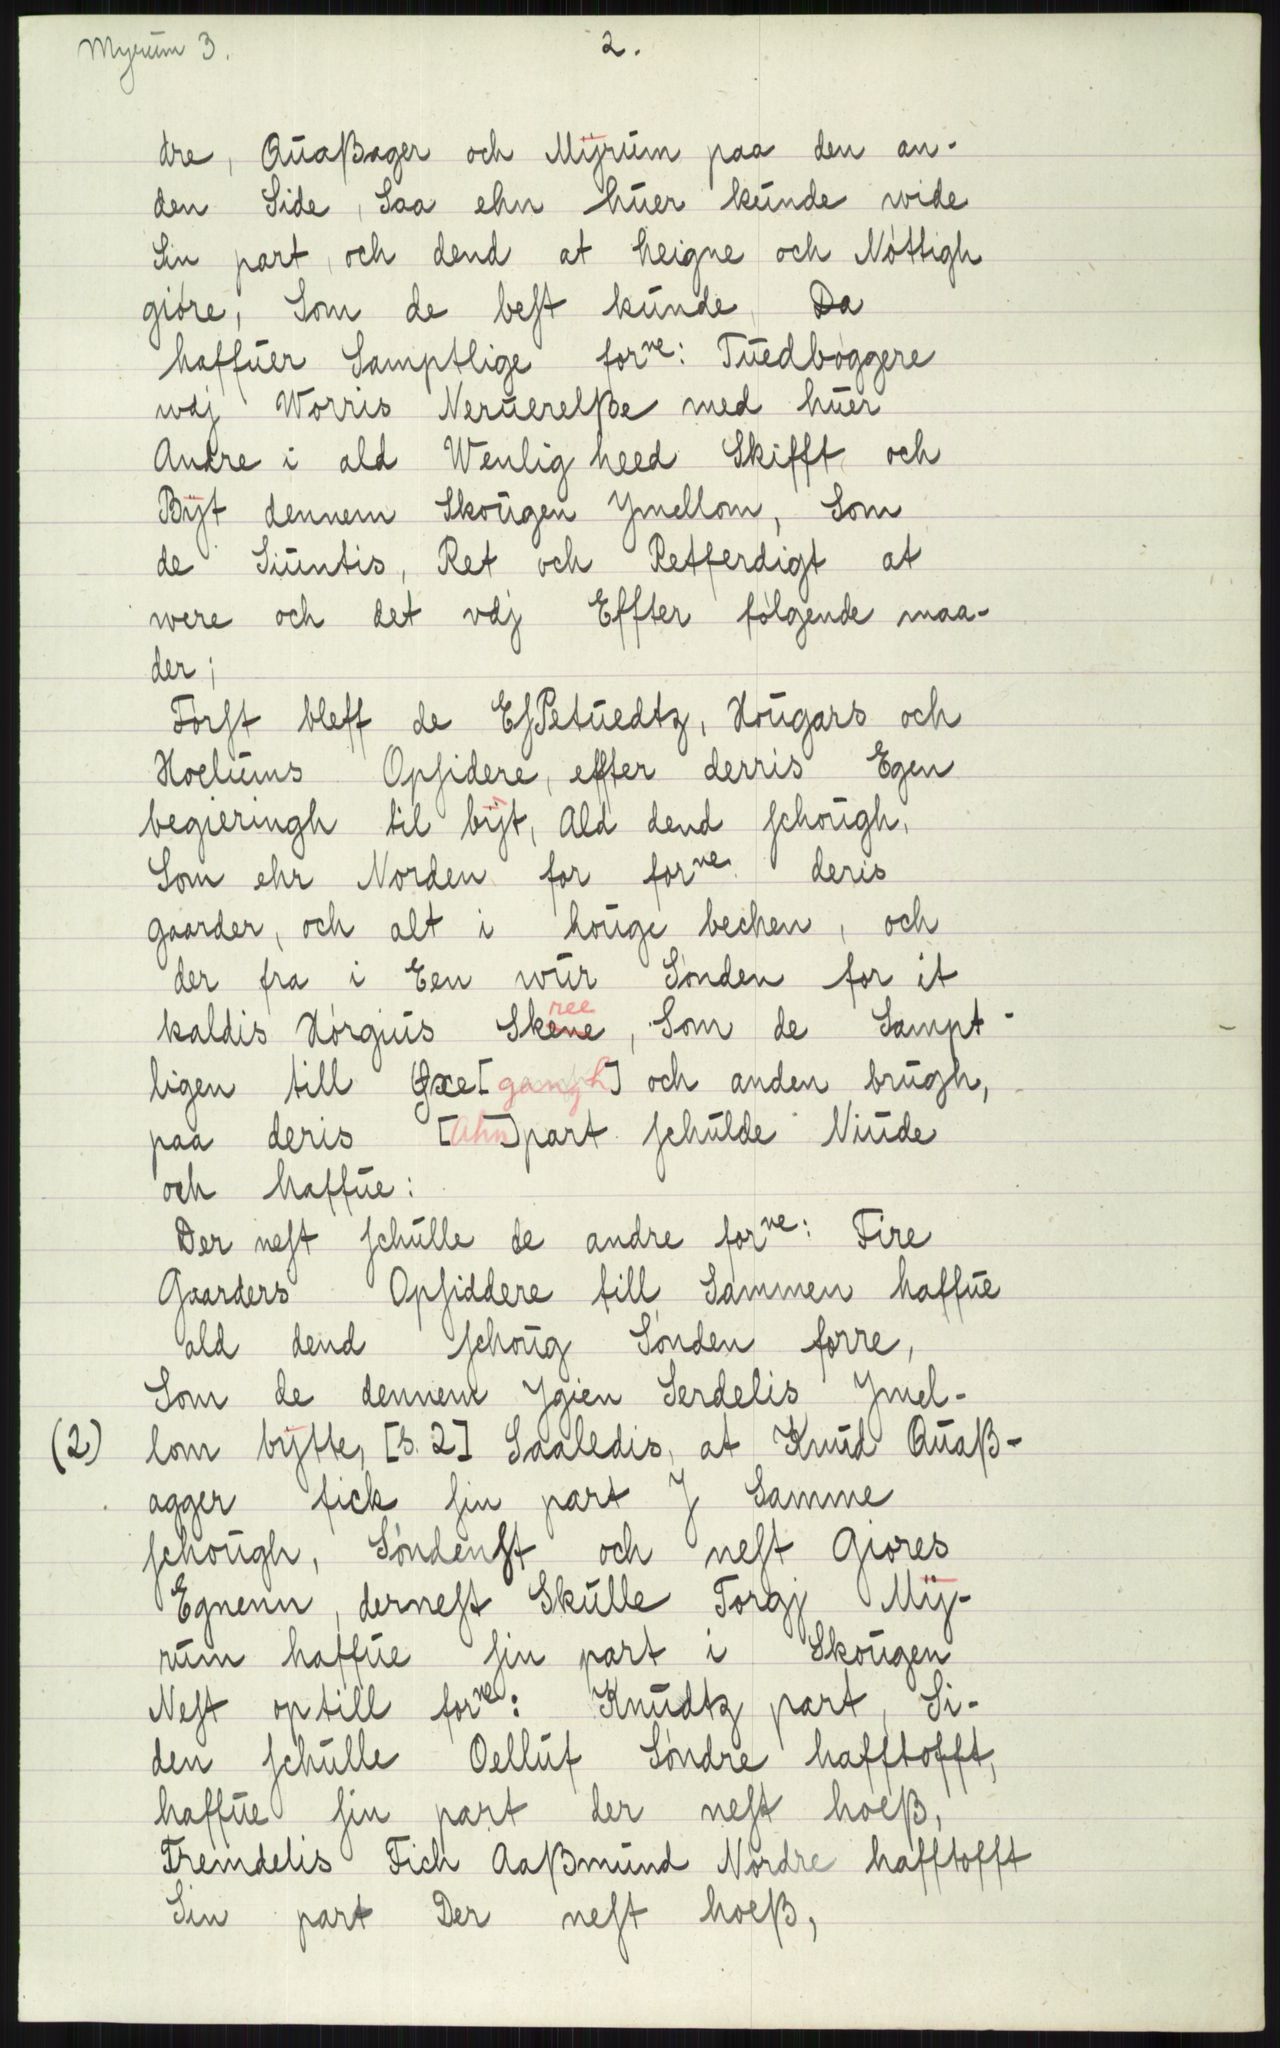 Myrum 3.
2.
dre, Quaßager och Mÿrum paa den an-
den Side, Saa ehn huer kunde wide
Sin part, och dend at heigne och Nøttigh
giøre, Som de best kunde, Da
haffuer Samptlige forne: Tuedbøggere
wdj Worris Neruerelße med huer
Andre i ald Wenlig heed Skifft och
Bÿt dennem Skougen Ymellom, Som
de Siuntis, Ret och Retferdigt at
were och det vdj Effter følgende maa-
der;
Først bleff de EsPetuedtz, Hougars och
Hoelums Opsidere, effter derris Egen
begieringh til bÿt, Ald dend schough,
Som ehr Norden for forne. deris
gaarder, och alt i houge bechen, och
der fra i Een wur Sønden for it
ree
kaldis Hørgius Skene, Som de Sampt-
ligen till Øxe[gangh] och anden brugh,
paa deris [Ahn]part schulde Niude
och haffue:
Der nest schulle de andre forne: Fire
Gaarders Opsiddere till Sammen haffue
ald dend schoug Sønden forre,
Som de dennem Ygien Serdelis Ymel-
(2) lom bÿtte, [s. 2] Saaledis, at Knud Quaß-
agger fick sin part J Samme
schough, Søndenst och nest Giøres
Egnenn, dernest Skulle Torgj Mÿ-
rum haffue sin part i Skougen
Nest optill forne: Knudtz part, Si-
den schulle Oelluf Søndre hafftofft,
haffue sin part der nest hoeß,
Fremdelis Fich Aaßmund Nordre hafftofft
Sin part Der nest hoeß,